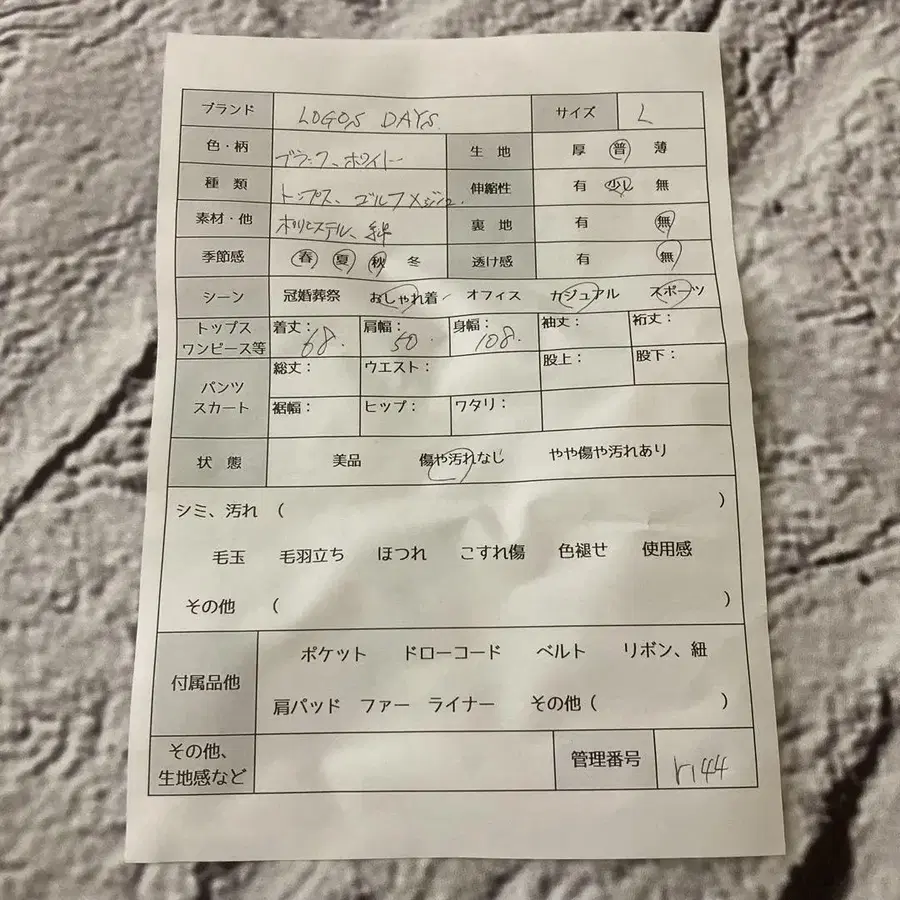 ブランド LOGOS DAYS. サイズ L
色・柄 ブラック、ホワイト 生地 厚 普 薄
種類 トップス、ゴルフ 伸縮性 有 少し 無
素材・他 ポリエステル、綿 裏地 有 無
季節感 春 夏 秋 冬 透け感 有 無
シーン 冠婚葬祭 おしゃれ着 オフィス カジュアル スポーツ
トップス ワンピース等 着丈: 68. 肩幅: 50. 身幅: 108. 袖丈: 裄丈:
パンツ スカート 総丈: ウエスト: 股上: 股下:
裾幅: ヒップ: ワタリ:
状態 美品 傷や汚れなし やや傷や汚れあり
シミ、汚れ ( )
毛玉 毛羽立ち ほつれ こすれ傷 色褪せ 使用感
その他 ( )
付属品他 ポケット ドローコード ベルト リボン、紐
肩パッド ファー ライナー その他 ( )
その他、 生地感など 管理番号 r144